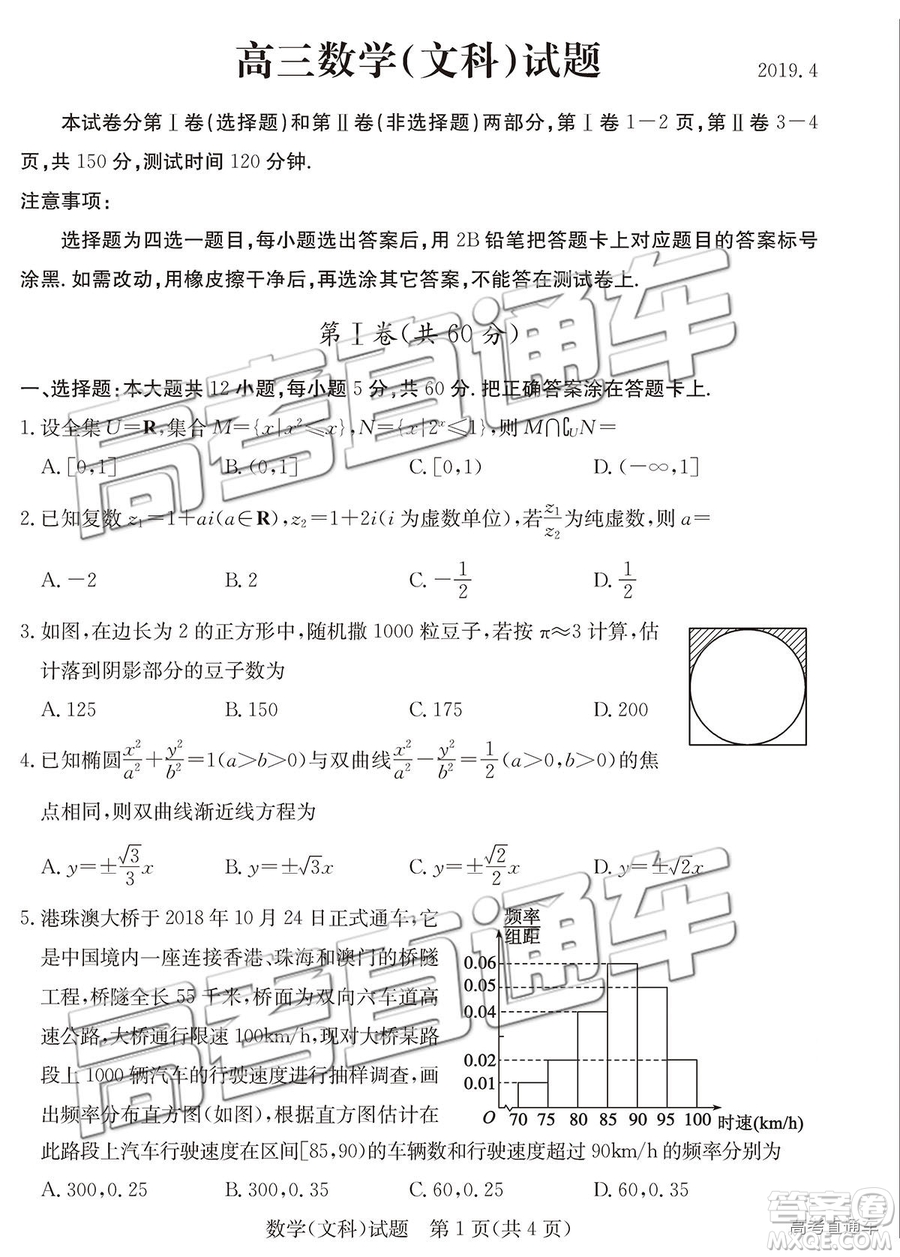 高三数学(文科)试题
2019.4
本试卷分第Ⅰ卷(选择题)和第Ⅱ卷(非选择题)两部分,第Ⅰ卷1-2页,第Ⅱ卷3-4
页,共150分,测试时间120分钟.
注意事项:
选择题为四选一题目,每小题选出答案后,用2B铅笔把答题卡上对应题目的答案标号
涂黑.如需改动,用橡皮擦干净后,再选涂其它答案,不能答在测试卷上.
第Ⅰ卷(共60分)
一、选择题:本大题共12小题,每小题5分,共60分.把正确答案涂在答题卡上.
1.设全集U=R,集合M={x|x²≤x},N={x|2ˣ≤1},则M∩∁UN=
A.[0,1] B.(0,1] C.[0,1) D.(-∞,1]
2.已知复数z₁=1+ai(a∈R),z₂=1+2i(i为虚数单位),若z₁/z₂为纯虚数,则a=
A.-2 B.2 C.-1/2 D.1/2
3.如图,在边长为2的正方形中,随机撒1000粒豆子,若按π≈3计算,估
计落到阴影部分的豆子数为
A.125 B.150 C.175 D.200
4.已知椭圆x²/a²+y²/b²=1(a>b>0)与双曲线x²/a²-y²/b²=1/2(a>0,b>0)的焦
点相同,则双曲线渐近线方程为
A.y=±√3/3x B.y=±√3x C.y=±√2/2x D.y=±√2x
5.港珠澳大桥于2018年10月24日正式通车,它
是中国境内一座连接香港、珠海和澳门的桥隧
工程,桥隧全长55千米,桥面为双向六车道高
速公路,大桥通行限速100km/h,现对大桥某路
段上1000辆汽车的行驶速度进行抽样调查,画
出频率分布直方图(如图),根据直方图估计在
此路段上汽车行驶速度在区间[85,90)的车辆数和行驶速度超过90km/h的频率分别为
A.300,0.25 B.300,0.35 C.60,0.25 D.60,0.35
频率
组距
0.06
0.05
0.04
0.02
0.01
O 70 75 80 85 90 95 100 时速(km/h)
数学(文科)试题 第1页(共4页)
高考直通车
高考直通车
答案圈
高考直通车
MXQE.COM